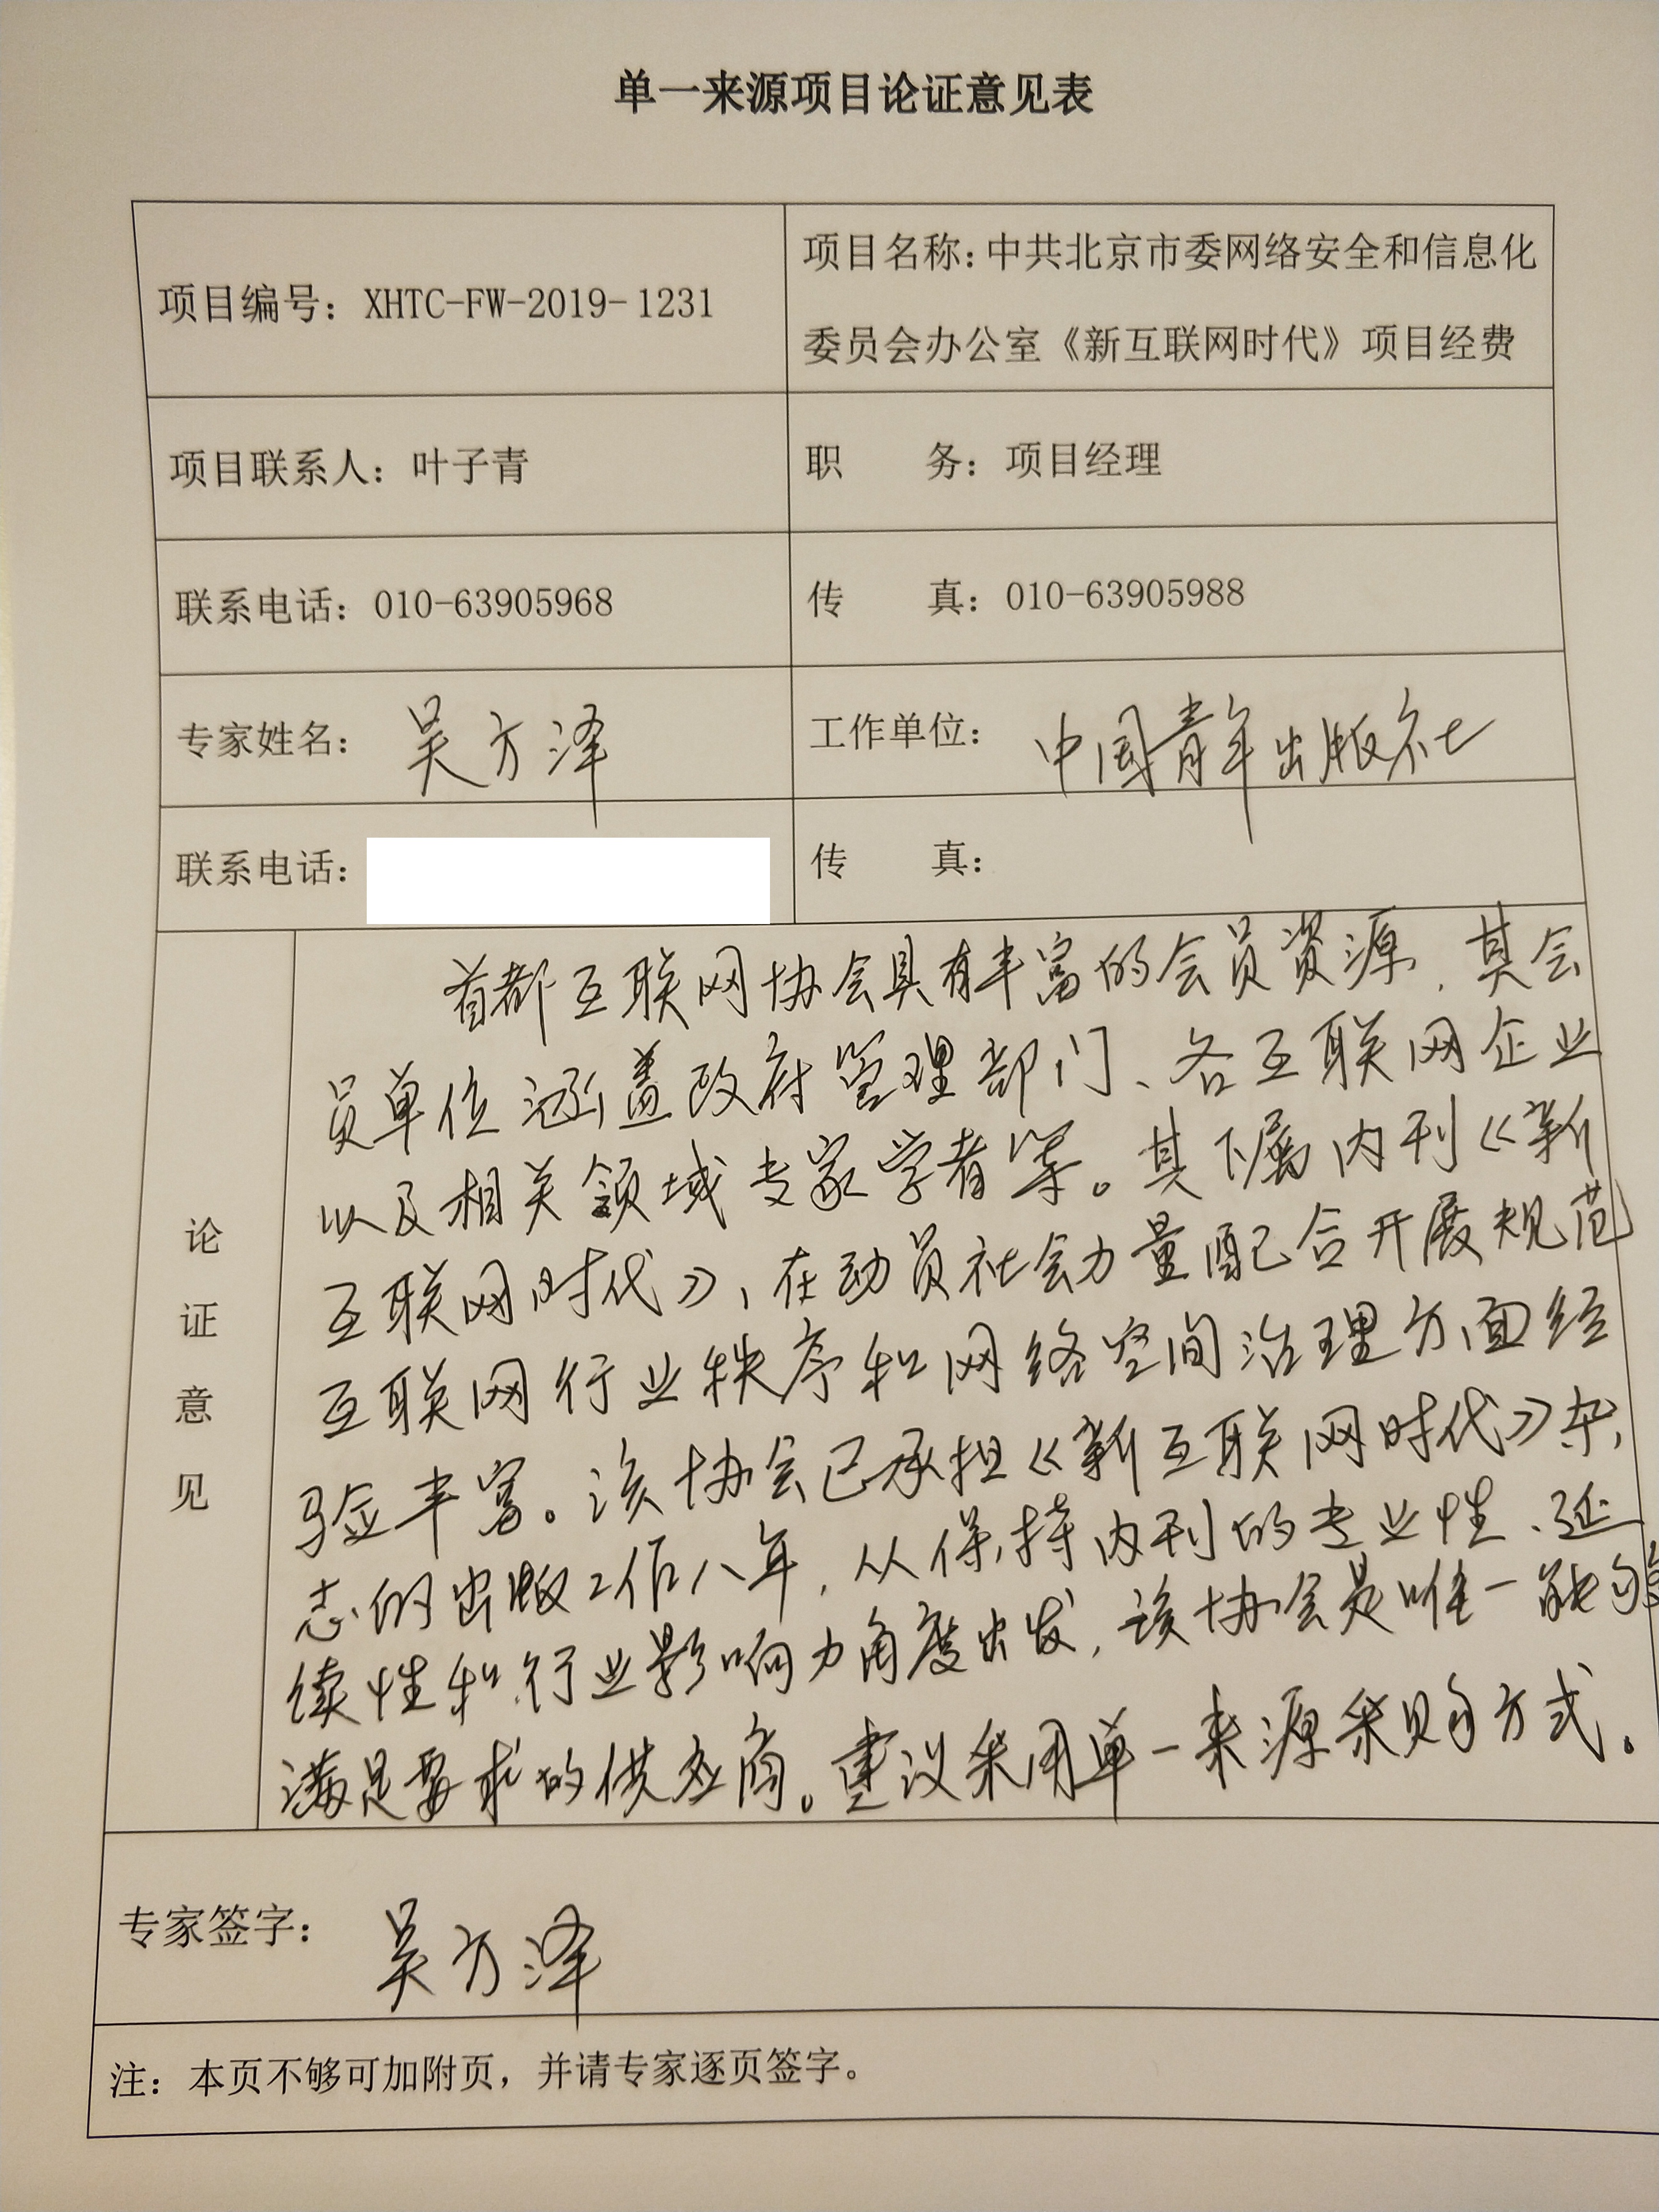 单一来源项目论证意见表
项目编号：XHTC-FW-2019-1231
项目名称：中共北京市委网络安全和信息化
委员会办公室《新互联网时代》项目经费
项目联系人：叶子青
职 务：项目经理
联系电话：010-63905968
传 真：010-63905988
专家姓名：吴方泽
工作单位：中国青年出版社
联系电话：
传 真：
论证意见
首都互联网协会具有丰富的会员资源，其会
员单位涵盖政府管理部门、各互联网企业
以及相关领域专家学者等。其下属内刊《新
互联网时代》，在动员社会力量配合开展规范
互联网行业秩序和网络空间治理方面经
验丰富。该协会已承担《新互联网时代》杂
志的出版工作八年，从保持内刊的专业性、延
续性和行业影响力角度出发，该协会是唯一能够
满足要求的供应商。建议采用单一来源采购方式。
专家签字：吴方泽
注：本页不够可加附页，并请专家逐页签字。